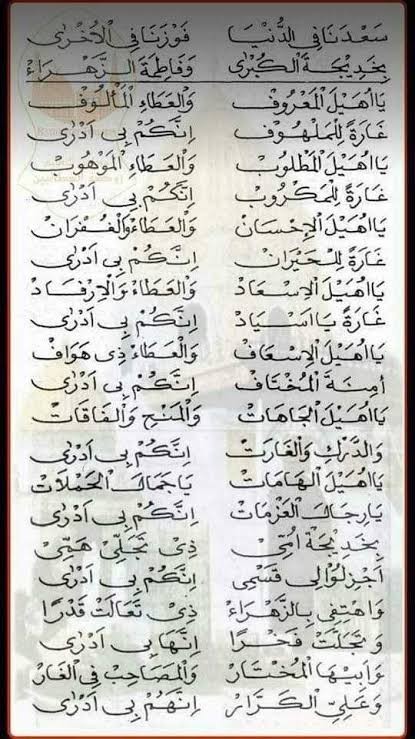 سَعْدَنَا فِي الدُّنْيَا فَوْزَنَا فِي الْأُخْرٰى
بِخَدِيْجَةَ الْكُبْرٰى وَفَاطِمَةَ الزَّهْرَاءْ
يَا اُهَيْلَ الْمَعْرُوْفْ وَالْعَطَاءِ الْمَأْلُوْفْ
غَارَةً لِلْمَلْهُوْفْ اِنَّكُمْ بِي اَدْرٰى
يَا اُهَيْلَ الْمَطْلُوْبْ وَالْعَطَاءِ الْمَوْهُوْبْ
غَارَةً لِلْمَكْرُوْبْ اِنَّكُمْ بِي اَدْرٰى
يَا اُهَيْلَ الْاِحْسَانْ وَالْعَطَاءْ وَالْغُفْرَانْ
غَارَةً لِلْحَيْرَانْ اِنَّكُمْ بِي اَدْرٰى
يَا اُهَيْلَ الْاِسْعَادْ وَالْعَطَاءْ وَالْاِرْفَادْ
غَارَةً يَا اَسْيَادْ اِنَّكُمْ بِي اَدْرٰى
يَا اُهَيْلَ الْاِسْعَافْ وَالْعَطَاءْ ذِي هَوَافْ
اُمِنَةَ الْمُخْتَافْ اِنَّكُمْ بِي اَدْرٰى
يَا اُهَيْلَ الْجَاهَاتْ وَالْمَنَحْ وَالْفَاقَاتْ
وَالدَّرَكْ وَالْغَارَتْ اِنَّكُمْ بِي اَدْرٰى
يَا اُهَيْلَ الْهَامَاتْ يَا جَمَالَ الْحَمْلَاتْ
يَا رِجَالَ الْعَزْمَاتْ اِنَّكُمْ بِي اَدْرٰى
بِخَدِيْجَةْ اُمِّيْ ذِيْ تَجَلِّيْ هَمِّيْ
اَجْزِلُوْا لِي قَسْمِيْ اِنَّكُمْ بِي اَدْرٰى
وَاهْتِفِي بِالزَّهْرَاءْ ذِيْ تَعَالَتْ قَدْرًا
وَتَجَلَّتْ فَخْرًا اِنَّهَا بِي اَدْرٰى
وَاَبِيْهَا الْمُخْتَارْ وَالْمُصَاحِبْ فِي الْغَارْ
وَعَلِيِّ الْكَرَّارْ اِنَّهُمْ بِي اَدْرٰى